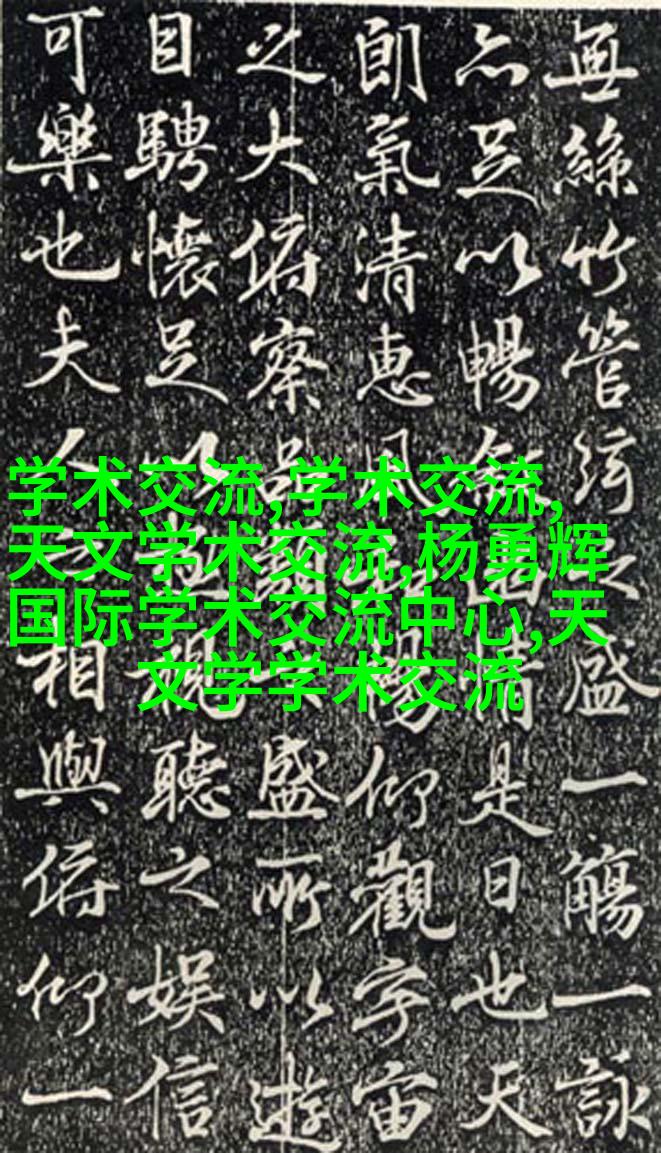 無絲竹管絃之盛一觴一詠
亦足以暢敘幽情是日也天
朗氣清惠風暢仰觀宇宙
之大俯察品類盛所以遊
目騁懷足以極視聽之娛信
可樂也夫人之相與俯仰一
学术交流,学术交流,
天文学术交流,杨勇辉
国际学术交流中心,天
文学学术交流